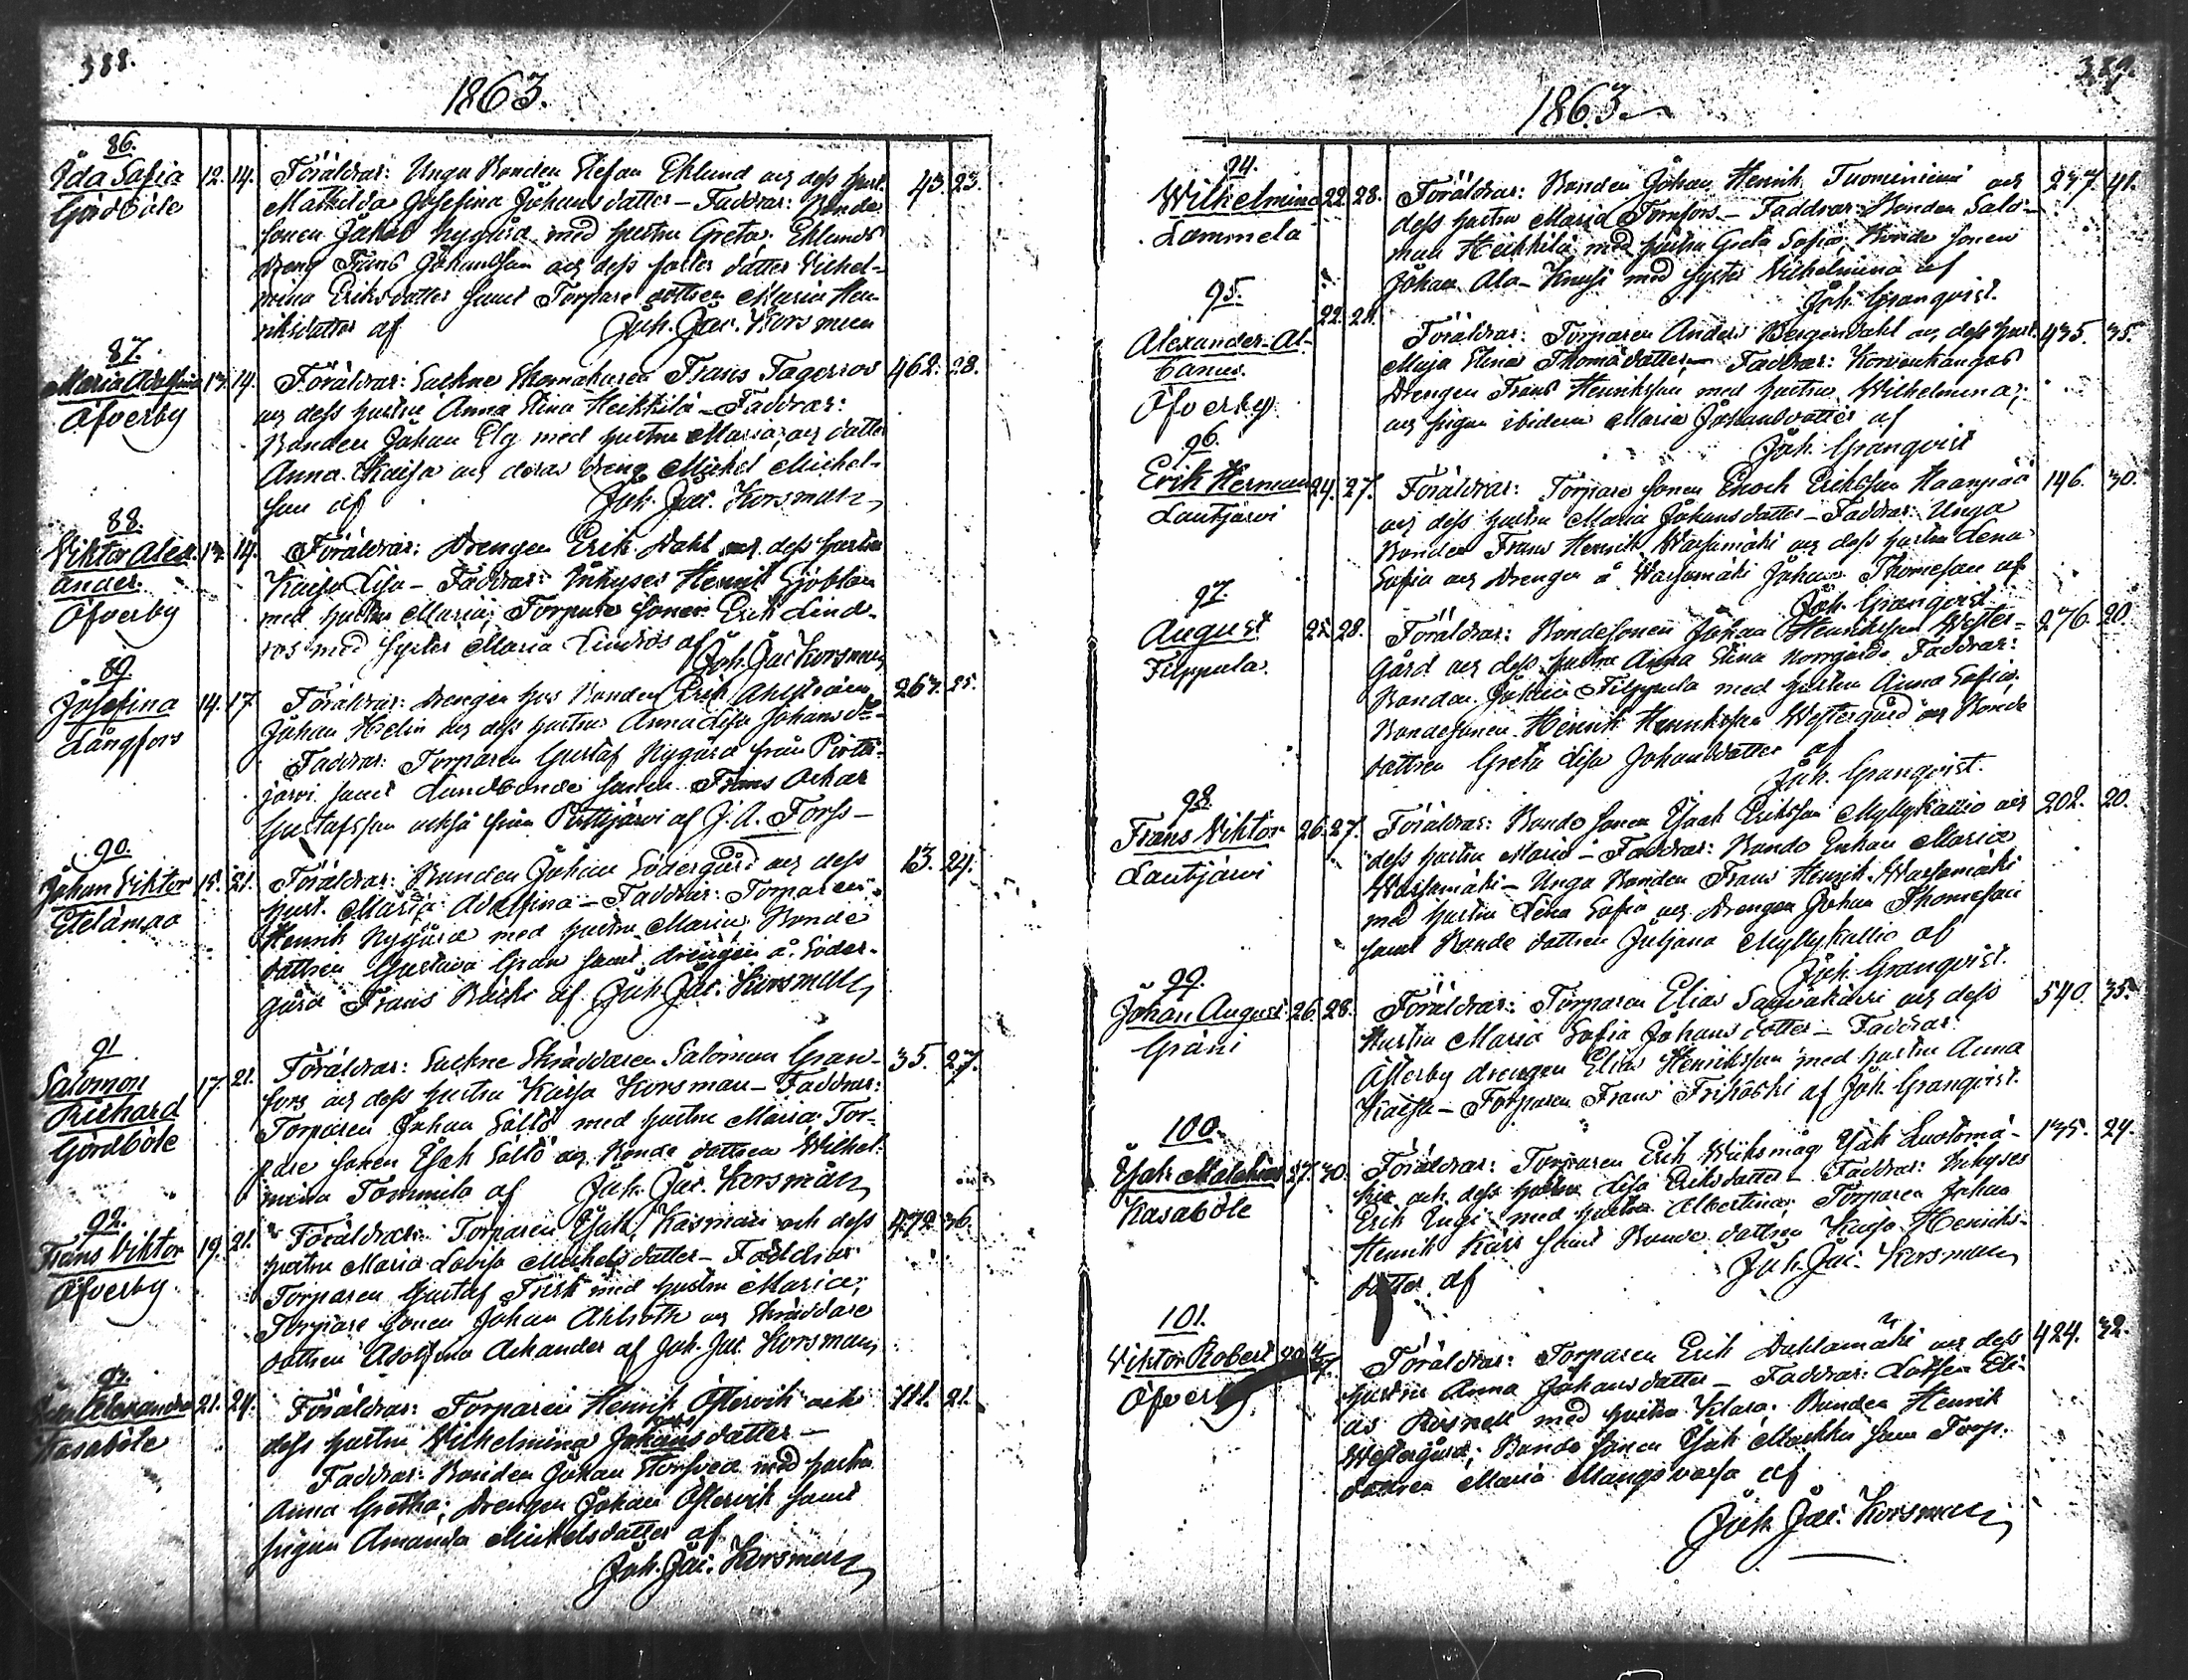 388.
1863.
86.
Ida Sofia 12. 14. Föräldrar: Unga Bonden Stefan Eklund och dess hust. 43. 23.
Gördböle Mathilda Josefina Johansdatter – Faddrar: Bonde
sonen Jakob Nygård med hustru Greta; Eklunds
dreng Frans Johansson och dess foster datter Vilhel-
mina Eriksdatter samt Torpare dottren Maria Hen-
riksdatter af Joh. Jac. Korsman
87.
Maria Adolfina 13. 14. Föräldrar: Sockne Skomakaren Frans Tagerros 462. 28.
Öfverby och dess hustru Anna Stina Heikkilä – Faddrar:
Bonden Johan Elg med hustru Maria; och datter
Anna Kaisa och deras dreng Michel Michel-
son af Joh. Jac. Korsman
88.
Viktor Alex- 13. 14. Föräldrar: Drengen Erik Dahl och dess hustru
ander Kaisa Lisa – Faddrar: Inhyses Henrik Sjöblom
Öfverby med hustru Maria; Torpare sonen Erik Lind-
ros med syster Maria Lindros af Joh. Jac Korsman
89.
Josefina 14. 17. Föräldrar: Drengen hos Bonden Erik Ahlström 263. 25.
Långfors Johan Helin och dess hustru Anna Lisa Johansdr
Faddrar: Torparen Gustaf Nygård från Pirtti-
järvi samt Landbonde sonen Frans Oskar
Gustafsson också från Pirttijärvi af J. A. Forss –
90.
Johan Viktor 15. 21. Föräldrar: Bonden Johan Södergård och dess 13. 24.
Etelämaa hust. Maria Adolfina – Faddrar: Torparen
Henrik Nygård med hustru Maria; Bonde
dottren Gustava Gran samt drengen å Söder-
gård Frans Backe af Joh. Jac. Korsman
91
Salomon 17. 21. Föräldrar: Sockne Skräddaren Salomon Gran- 35. 27.
Richard fors och dess hustru Kaisa Korsman – Faddrar:
Gördböle Torparen Johan Sältö med hustru Maria; Tor-
pare sonen Isak Sältö och Bonde dottren Wilhel-
mina Tommila af Joh. Jac. Korsman
92.
Frans Viktor 19. 21. Föräldrar: Torparen Isak Kasmari och dess 472. 36.
Öfverby hustru Maria Lovisa Michelsdatter – Faddrar
Torparen Gustaf Frisk med hustru Maria;
Torpare sonen Johan Ahlroth och Skräddare
dottren Adolfina Ackander af Joh. Jac. Korsman
93.
Alexandra 21. 24. Föräldrar: Torparen Henrik Östervik och 111. 21.
Kasaböle dess hustru Wilhelmina Johansdatter –
Faddrar: Bonden Johan Storsved med hustru
Anna Gretha; Drengen Johan Östervik samt
pigan Amanda Mickelsdatter af
Joh. Jac. Korsman
389.
1863
94.
Wilhelmina 22. 28. Föräldrar: Bonden Johan Henrik Tuominiemi och 237. 41.
Lammela dess hustru Maria Tornfors – Faddrar: Bonden Salo-
mon Heikkilä med hustru Greta Sofia; Bonde sonen
Johan Ala-Knussi med syster Vilhelmina af
Joh. Granqvist.
95.
22. 28. Föräldrar: Torparen Anders Bergendahl och dess hust. 435. 35.
Alexander Al- Maja Stina Thomasdatter – Faddrar: Korvenkangas
banus. Drengen Frans Henriksson med hustru Wilhelmina;
Öfverby och pigan ibidem Maria Johansdatter af
Joh. Granqvist
96.
Erik Herman 24. 27. Föräldrar: Torpare sonen Enoch Eriksson Haanpää 146. 30.
Lautjärvi och dess hustru Maria Johansdatter – Faddrar: Unga
Bonden Frans Henrik Warsamäki och dess hustru Lena
Sofia och Drengen å Warsamäki Johan Thomeson af
Joh. Granqvist
97.
August 25. 28. Föräldrar: Bondesonen Johan Henriksson Wester- 276. 20.
Filppula. gård och dess hustru Anna Stina Norrgård. Faddrar:
Bonden Johan Filppula med hustru Anna Sofia;
Bondesonen Henrik Henriksson Westergård och Bonde
dottren Greta Lisa Johansdatter af
Joh. Granqvist.
98.
Frans Viktor 26. 27. Föräldrar: Bonde sonen Isaak Eriksson Myllykallio och 202. 20.
Lautjärvi dess hustru Maria – Faddrar: Bonde Enkan Maria
Warsamäki – Unga Bonden Frans Henrik Warsamäki
med hustru Lena Sofia och Drengen Johan Thomeson
samt Bonde dottren Juliana Myllykallio af
Joh. Granqvist.
99.
Johan August 26. 28. Föräldrar: Torparen Elias och dess 540. 35.
Gräni Hustru Maria Sofia Johansdotter – Faddrar:
Åsterby drengen Elias Henriksson med hustru Anna
Kaisa – Torparen Frans Friköski af Joh. Granqvist.
100.
Isak Malakias 27. 30. Föräldrar: Torparen Erik Wiiks måg Isak Luotomä- 135. 24.
Kasaböle ki och dess hustru Lisa Eriksdatter – Faddrar: Inhyses
Erik Engs med hustru Albertina; Torparen Johan
Henrik Kärr samt Bonde dottren Kaisa Henriks-
datter af Joh. Jac. Korsman
101.
Viktor Robert Föräldrar: Torparen Erik Dahlamäki och dess 424. 32.
Öfverby hustru Anna Johansdatter – Faddrar: Lotsen Eli-
as Rosnell med hustru Klara; Bonden Henrik
Westergård; Bonde sonen Isak Markku samt Torp.
dottren Maria Mangsvarfa af
Joh. Jac. Korsman